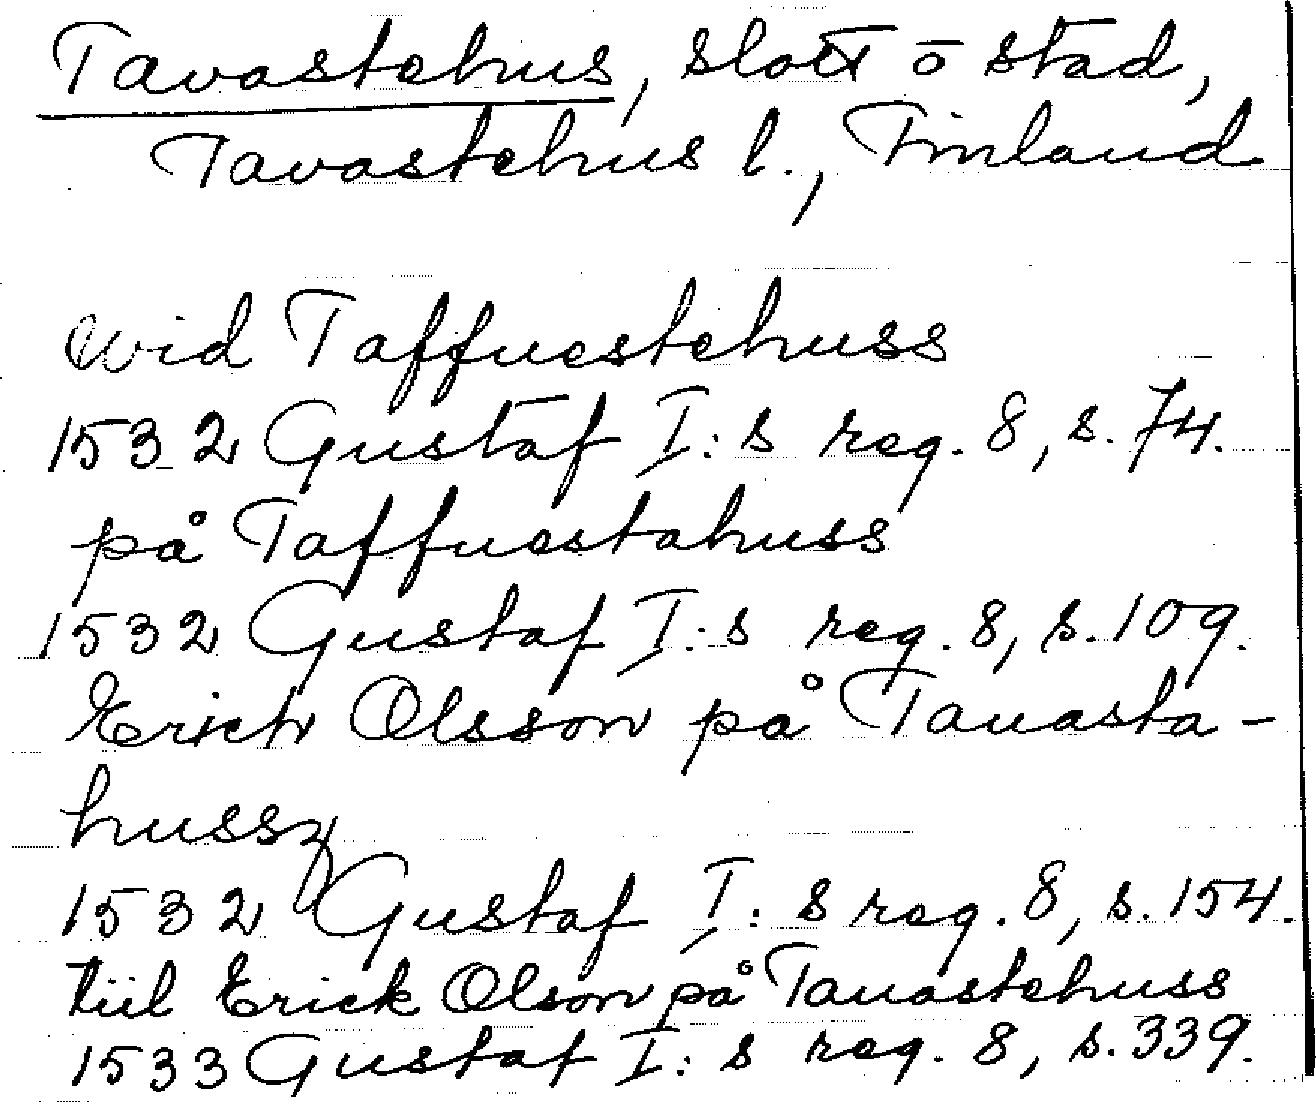 Tavastehus, slott ō stad,
Tavastehus l., Finland
wid Taffuestehuss
1532 Gustaf I:s reg. 8, s. 74.
på Taffuestahuss
1532 Gustaf I:s reg. 8, s. 109.
Erich Olsson på Tauasta-
hussz
1532 Gustaf I:s reg. 8, s. 154.
tiil Erick Olson på Tauastehuss
1533 Gustaf I:s reg. 8, s. 339.